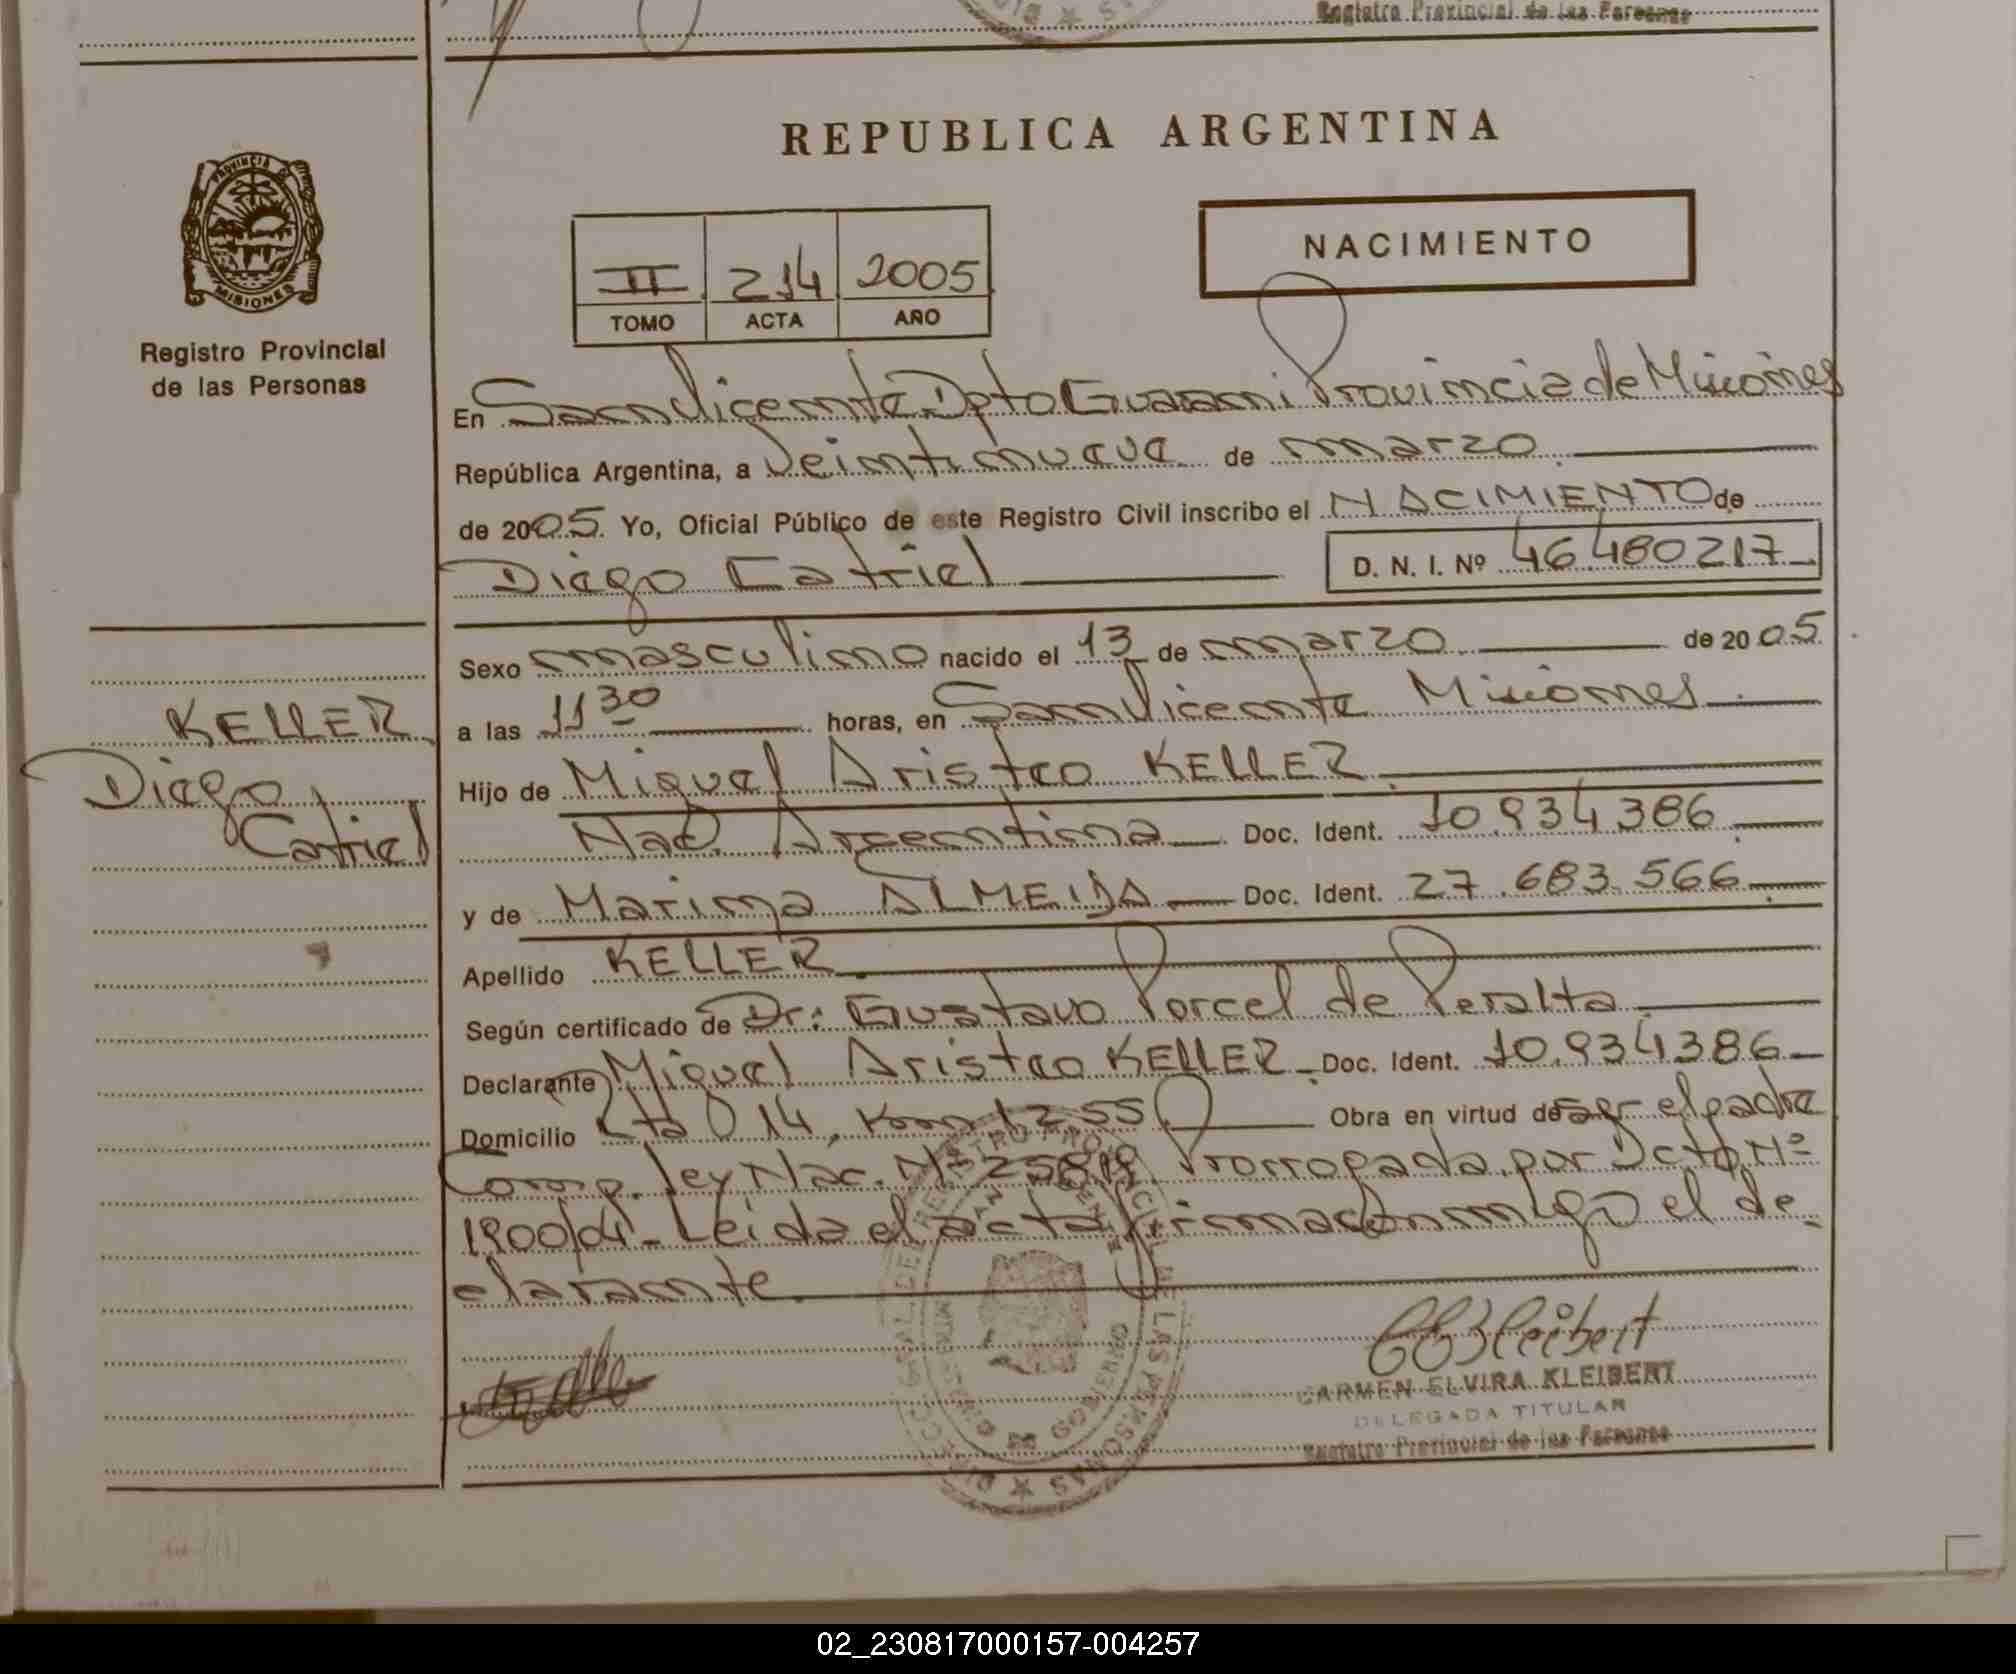 Registro Provincial de las Personas
REPUBLICA ARGENTINA
PROVINCIA DE
MISIONES
Registro Provincial
de las Personas
II 214 2005
TOMO ACTA AÑO
NACIMIENTO
En San Vicente Dpto Guarani Provincia de Misiones
República Argentina, a Veintinueve de marzo
de 2005. Yo, Oficial Público de este Registro Civil inscribo el NACIMIENTO de
Diego Catriel D. N. I. Nº 46.480217
Sexo masculino nacido el 13 de marzo de 2005
a las 11 30 horas, en San Vicente Misiones
Hijo de Miguel Aristeo KELLER
Nac. Argentina Doc. Ident. 10.934.386
y de Marina ALMEIDA Doc. Ident. 27.683.566
Apellido KELLER
Según certificado de Dr: Gustavo Porcel de Peralta
Declarante Miguel Aristeo KELLER Doc. Ident. 10.934386
Domicilio Rta 14, Km 1255 Obra en virtud de ser el padre
Comp. Ley Nac. Nº 25819 Prorrogada por Dcto Nº
1900/04 - Leida el acta firma conmigo el de-
clarante.
KELLER
Diego
Catriel
CARMEN ELVIRA KLEIBERT
DELEGADA TITULAR
Registro Provincial de las Personas
02_230817000157-004257